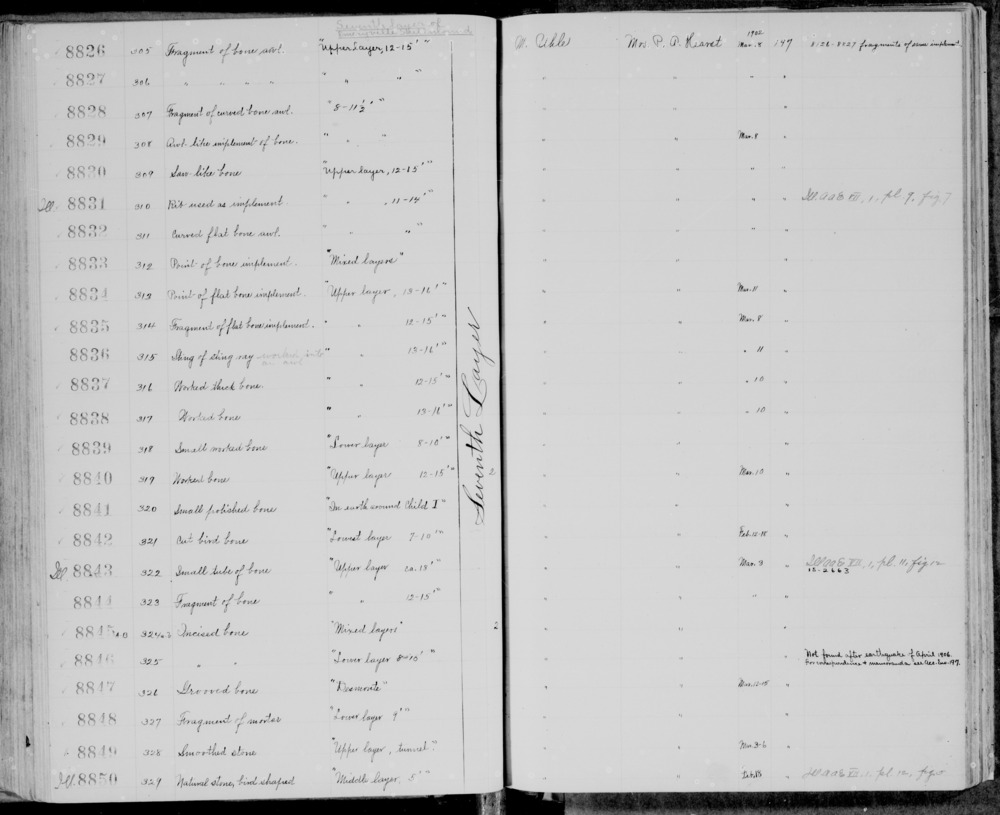 Seventh layer of
8826 305 Fragment of bone awl. "Upper Layer, 12-15'" M. Uhle Mrs P. A. Hearst 1902 Mar. 8 147 8826-8827 fragments of same implement
8827 306 " " " " " " " " " "
8828 307 Fragment of curved bone awl. "8-11½'" " " "
8829 308 Awl-like implement of bone. " " " " " Mar. 8 "
8830 309 Saw-like bone "Upper layer, 12-15'" " " " "
Ill. 8831 310 Rib used as implement. " " , 11-14'" " " " " Ill. AAE VII, 1, pl. 9, fig. 7
8832 311 Curved flat bone awl. " " " " " " "
8833 312 Point of bone implement. "Mixed layers" " " "
8834 313 Point of flat bone implement. "Upper layer, 13-16'" " " Mar. 11 "
8835 314 Fragment of flat bone implement. " " 12-15'" " " Mar. 8 "
8836 315 Sting of sting-ray worked into an awl " " 13-16'" " " " 11 "
8837 316 Worked thick bone. " " 12-15'" " " " 10 "
8838 317 Worked bone " " 13-16'" " " " 10 "
8839 318 Small worked bone "Lower layer 8-10'" " " " "
8840 319 Worked bone "Upper layer 12-15'" 2 " " Mar. 10 "
8841 320 Small polished bone "In earth around Child I" " " "
8842 321 Cut bird bone "Lowest layer 7-10'" " " Feb. 12-15 "
Ill 8843 322 Small tube of bone "Upper layer ca. 15'" " " Mar. 3 " Ill AAE VII, 1, pl. 11, fig 2
12-2663
8844 323 Fragment of bone " " 12-15'" " " "
8845 a-b 324 a-b Incised bone "Mixed layers" 2 " " "
8846 325 " " "Lower layer 8-10'" " " " Not found after earthquake of April 1906.
For correspondence & memoranda see Acc. Env. 147.
8847 326 Grooved bone "Desmonte" " " Mar. 12-15 "
8848 327 Fragment of mortar "Lower layer 9'" " " "
8849 328 Smoothed stone "Upper layer, tunnel." " " Mar. 3-6 "
Ill. 8850 329 Natural stone, bird shaped "Middle layer, 5'" " " Feb. 13 " Ill AAE VII, 1, pl. 12, fig
Seventh Layer